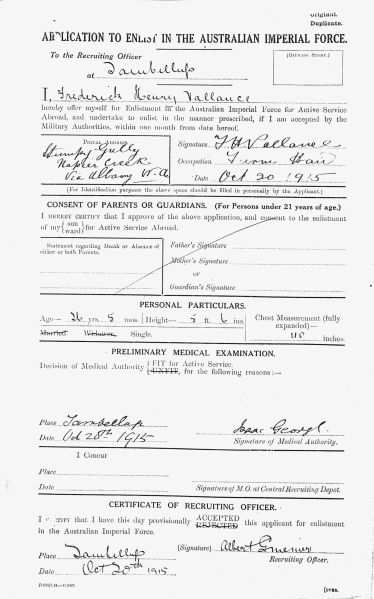 Original.
Duplicate.
APPLICATION TO ENLIST IN THE AUSTRALIAN IMPERIAL FORCE.
To the Recruiting Officer
at Tambellup
(OFFICIAL STAMP.)
I, Frederick Henry Vallance
hereby offer myself for Enlistment in the Australian Imperial Force for Active Service
Abroad, and undertake to enlist in the manner prescribed, if I am accepted by the
Military Authorities, within one month from date hereof.
POSTAL ADDRESS
Stumpy Gully
Napier Creek
Via Albany W.A
Signature F H Vallance
Occupation
Date Oct 20 1915
(For Identification purposes the above space should be filled in personally by the Applicant.)
CONSENT OF PARENTS OR GUARDIANS. (For Persons under 21 years of age.)
I HEREBY CERTIFY that I approve of the above application, and consent to the enlistment
of my {son / ward} for Active Service Abroad.
Statement regarding Death or Absence of
either or both Parents.
Father's Signature
Mother's Signature
or
Guardian's Signature
PERSONAL PARTICULARS.
Age— 26 yrs 5 mos.
Height— 5 ft. 6 ins.
Chest Measurement (fully
expanded)—
40 inches.
Married. Widower. Single.
PRELIMINARY MEDICAL EXAMINATION.
Decision of Medical Authority {FIT for Active Service.
{UNFIT, for the following reasons:—
Place Tambellup
Date Oct 20th 1915
Isaac George
Signature of Medical Authority.
I Concur
Place
Date
Signature of M.O. at Central Recruiting Depot.
CERTIFICATE OF RECRUITING OFFICER.
I CERTIFY that I have this day provisionally ACCEPTED / REJECTED this applicant for enlistment
in the Australian Imperial Force.
Place Tambellup
Date Oct 20th 1915
(Signature) Albert
Recruiting Officer.
[OVER.